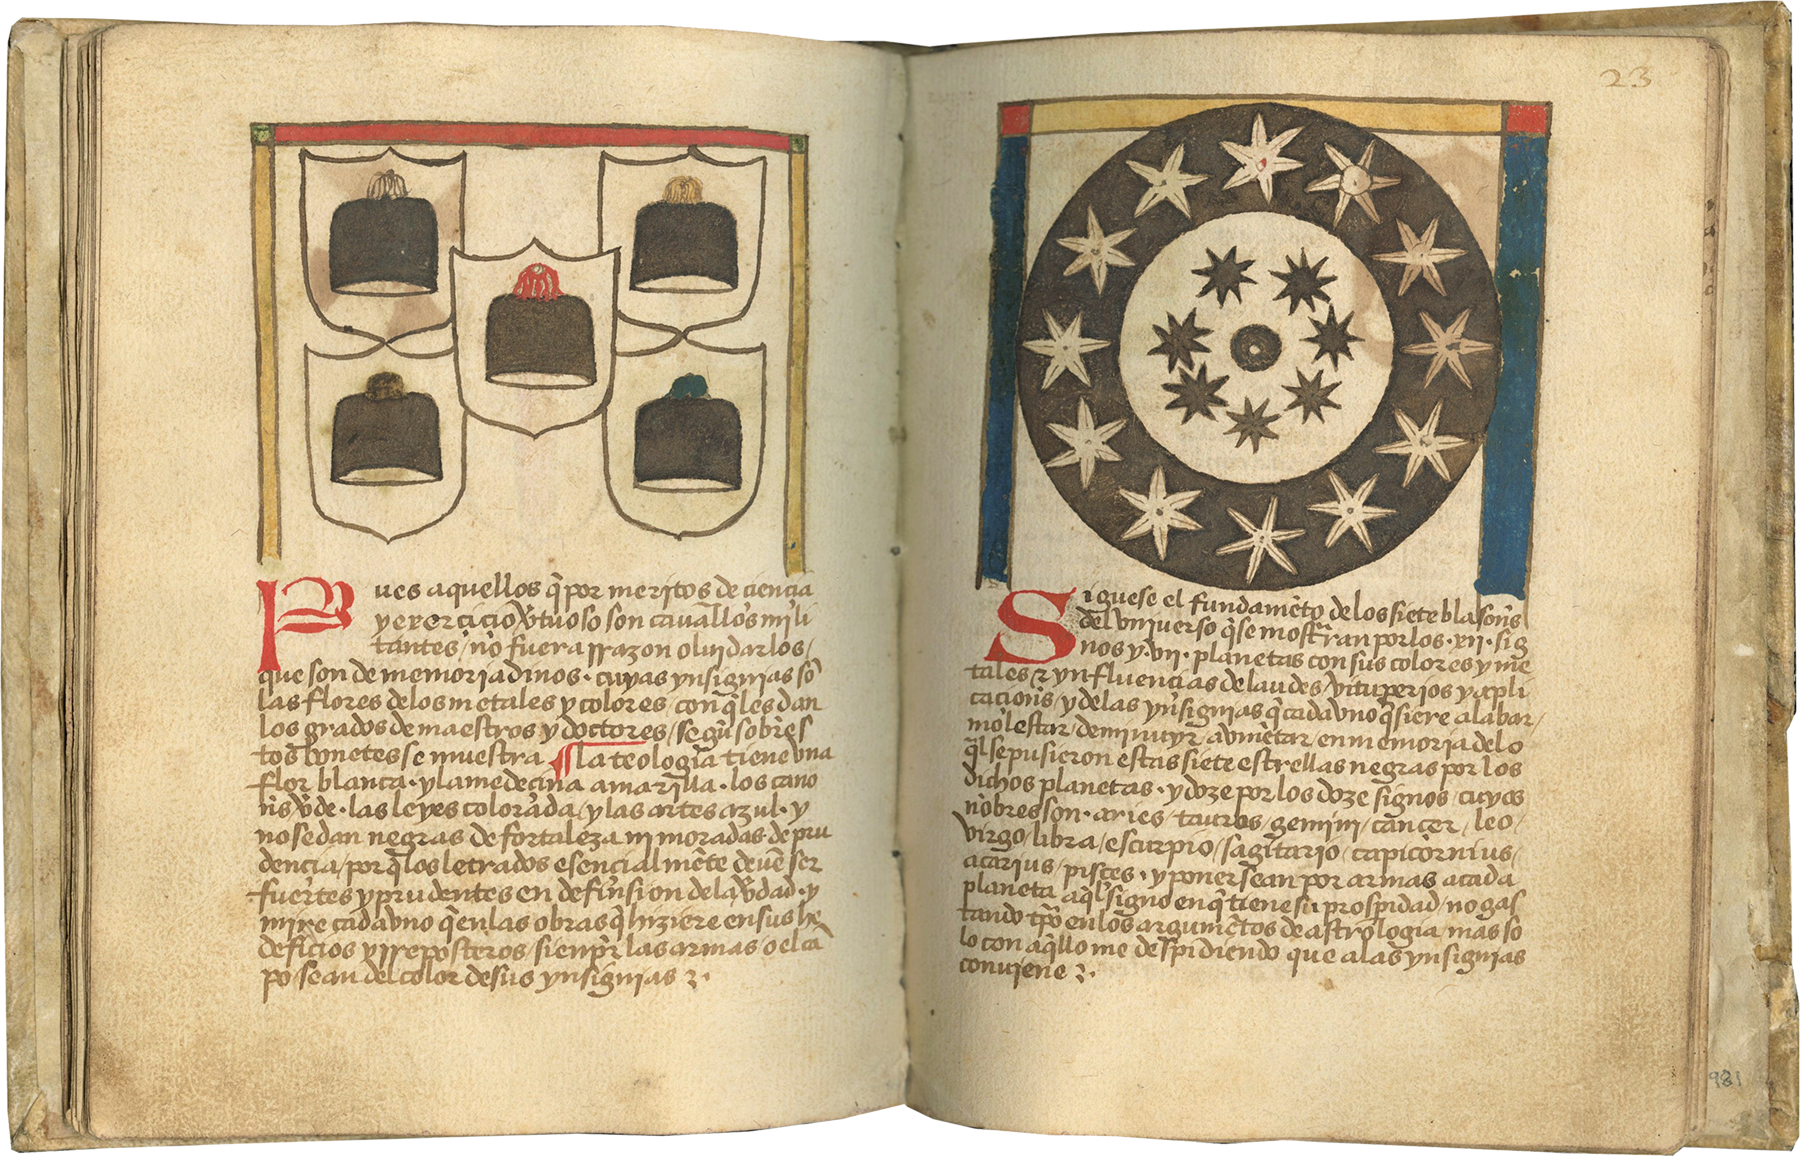 Pues aquellos q̃ por meritos de ciencia
y exercicio v̓tuoso son cauall'os mili
tantes / nõ fuera rrazon oluidarlos /
que son de memoria dinos · cuyas ynsignias sõ
las flores de los metales y colores / con q̃ les dan
los grados de maestros y doctores / segũ sobr̃es
tos bonetes se muestra ¶ la teologia tiene vna
flor blanca · y la medecina amarilla · los cano
nes v̓de · las leyes colorada / y las artes azul · y
no se dan negras de fortaleza ni moradas de pru
dencia / por q̃ los letrados esencialmẽte deuẽ ser
fuertes y prudentes en definsion de la v̓dad · y
mire cadavno q̃ en las obras q̃ hiziere en sus he
deficios y rreposteros / sienpr̃ las armas o el cã
po sean del color de sus ynsignias
23
Siguese el fundamẽto de los siete blasones
del vniuerso q̃ se mostraran por los · xii · sig
nos y · vii · planetas con sus colores y me
tales & ynfluencias de laudes / vituperios y apli
caciones / y de las ynsignias q̃ cadavno q̃siere alabar /
molestar / deminuyr / aumẽtar / en memoria de lo
q̃l se pusieron estas siete estrellas negras por los
dichos planetas · y doze por los doze signos / cuyos
nõbres son · aries / tauros / gemini / cancer / leo /
virgo / libra / escurpio / sagitario / capicornius /
acarius / pisces · y ponersean por armas a cada
planeta aq̃l signo en q̃ tiene su prosp̃idad / no gas
tando tp̃o en los argumẽtos de astrologia mas so
lo con aq̃llo me despidiendo que a las ynsignias
conuiene
981